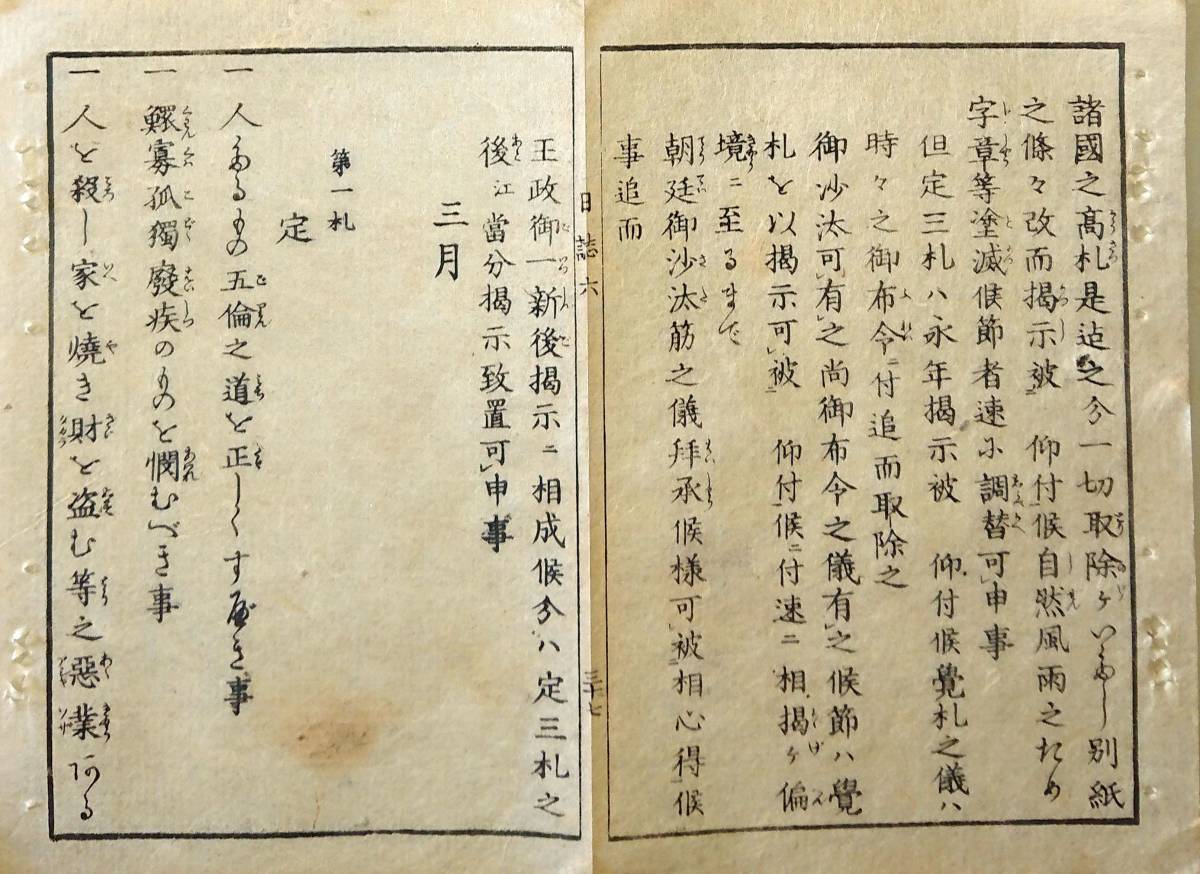 諸國之髙札是迠之分一切取除ケいたし別紙
之條々改而揭示被　仰付候自然風雨之ため
字章等塗滅候節者速に調替可申事
但定三札ハ永年揭示被　仰付候覺札之儀ハ
時々之御布令ニ付追而取除之
御沙汰可有之尚御布令之儀有之候節ハ覺
札を以揭示可被　仰付候ニ付速ニ相揭ケ偏
境ニ至るまで
朝廷御沙汰筋之儀拜承候様可被相心得候
事追而
日誌六
三十七
王政御一新後揭示ニ相成候分ハ定三札之
後江當分揭示致置可申事
三月
第一札
定
一 人たるもの五倫之道を正しくすべき事
一 鰥寡孤獨廢疾のものを憫むべき事
一 人を殺し家を燒き財を盗む等之惡業ある